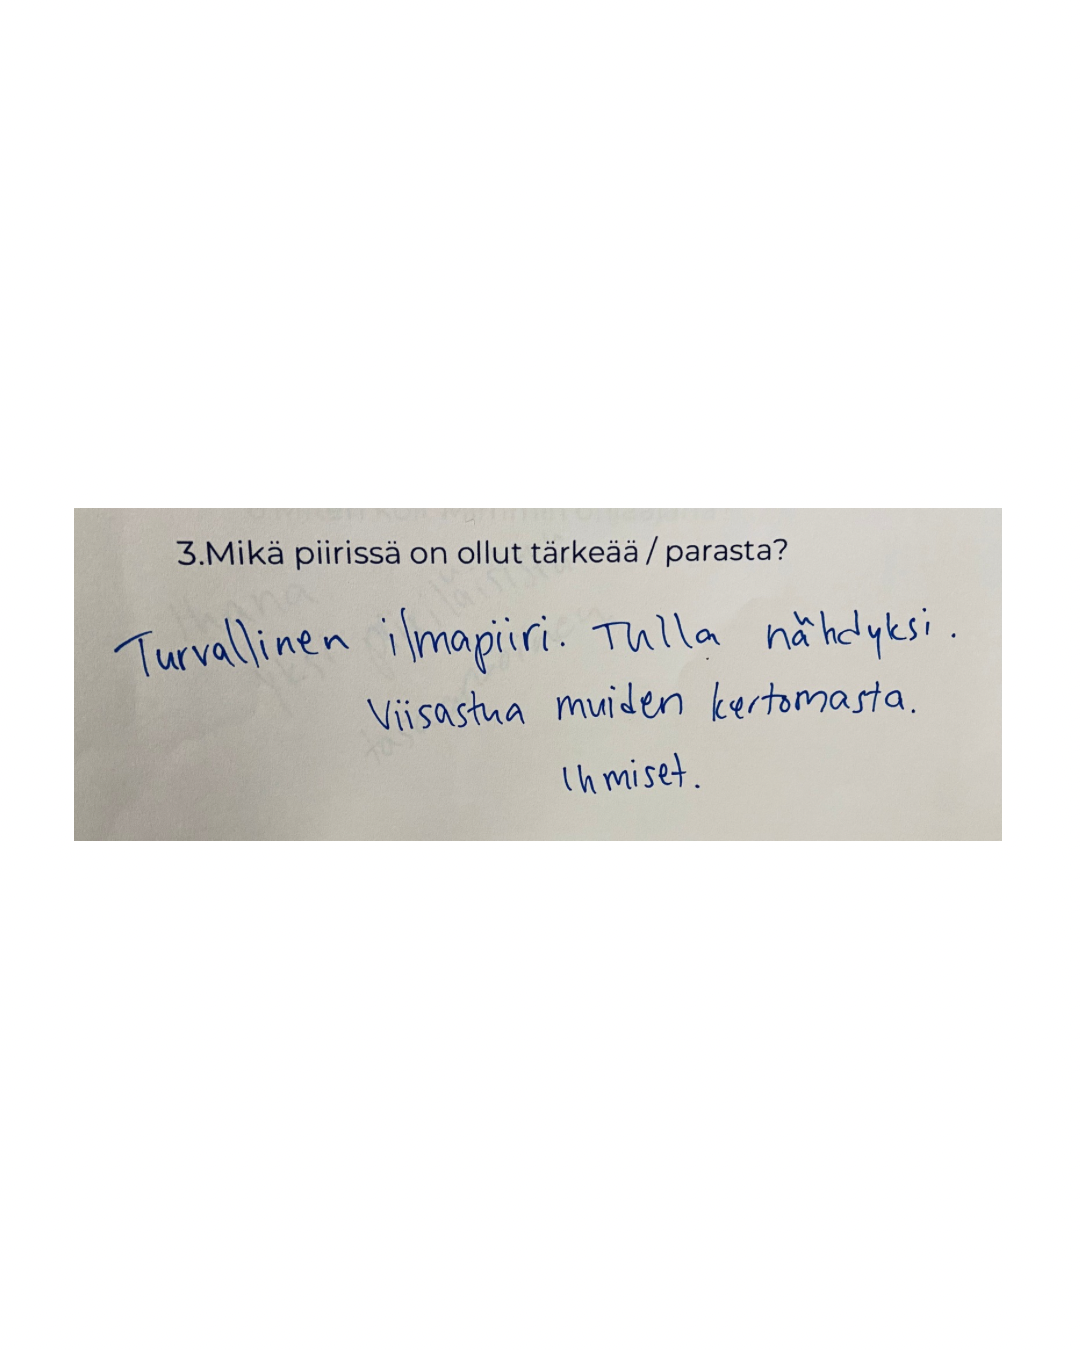 3.Mikä piirissä on ollut tärkeää / parasta?
Turvallinen ilmapiiri. Tulla nähdyksi.
Viisastua muiden kertomasta.
Ihmiset.